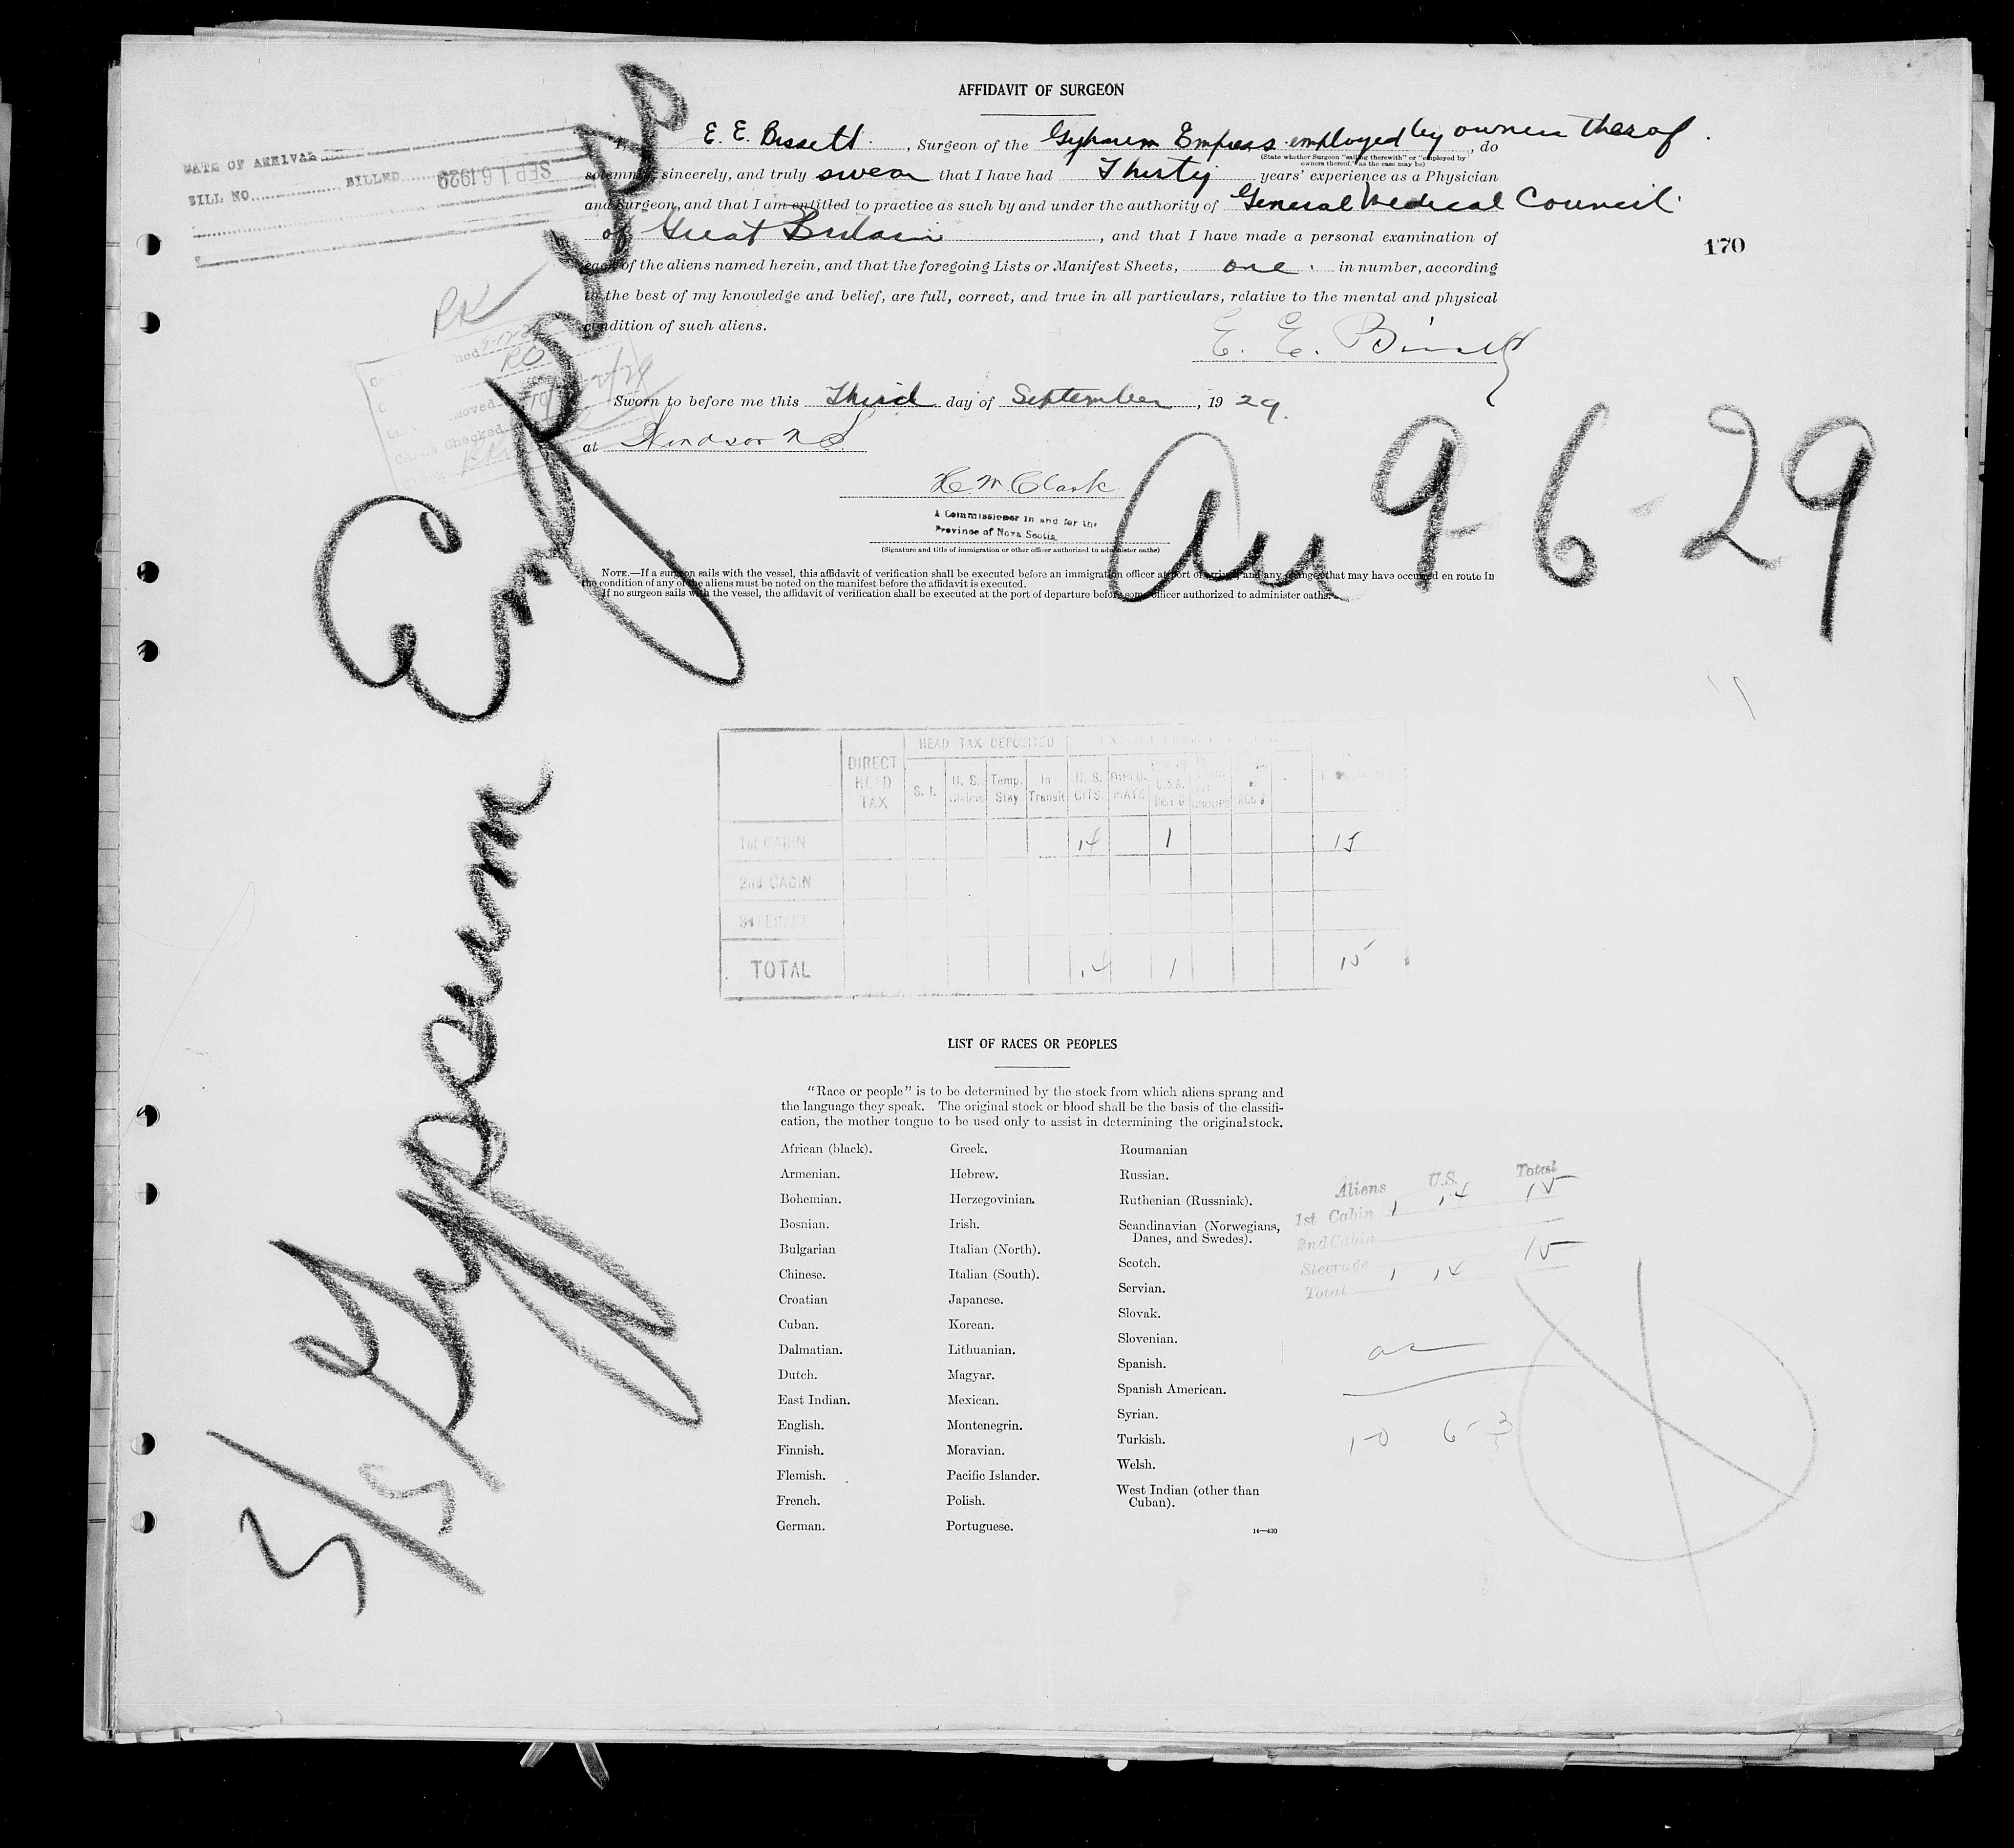 AFFIDAVIT OF SURGEON
E. E. Bissett. , Surgeon of the Gypsum Empress employed by owners thereof. , do
(State whether Surgeon "sailing therewith" or "employed by
owners thereof," as the case may be)
solemnly, sincerely, and truly swear that I have had Thirty years' experience as a Physician
and Surgeon, and that I am entitled to practice as such by and under the authority of General Medical Council.
of Great Britain , and that I have made a personal examination of
each of the aliens named herein, and that the foregoing Lists or Manifest Sheets, one. in number, according
to the best of my knowledge and belief, are full, correct, and true in all particulars, relative to the mental and physical
condition of such aliens.
E. E. Bissett
Sworn to before me this Third day of September , 19 29.
at Windsor N S
H. W. Clark
A Commissioner in and for the
Province of Nova Scotia
(Signature and title of immigration or other officer authorized to administer oaths)
NOTE.—If a surgeon sails with the vessel, this affidavit of verification shall be executed before an immigration officer at port of arrival, and any changes that may have occurred en route in
the condition of any of the aliens must be noted on the manifest before the affidavit is executed.
If no surgeon sails with the vessel, the affidavit of verification shall be executed at the port of departure before some officer authorized to administer oaths.
170
DATE OF ARRIVAL
BILL NO. BILLED SEP 16 1929
RK
Cards Checked
S/S Gypsum Empress
Arr 9-6-29
HEAD TAX DEPOSITED
DIRECT HEAD TAX S. I. U. S. Claims Temp. Stay In Transit U. S. CITS. DIPLO. MATS
1st CABIN 14 1 15
2nd CABIN
STEERAGE
TOTAL 14 1 15
LIST OF RACES OR PEOPLES
"Race or people" is to be determined by the stock from which aliens sprang and
the language they speak. The original stock or blood shall be the basis of the classifi-
cation, the mother tongue to be used only to assist in determining the original stock.
African (black).
Armenian.
Bohemian.
Bosnian.
Bulgarian
Chinese.
Croatian
Cuban.
Dalmatian.
Dutch.
East Indian.
English.
Finnish.
Flemish.
French.
German.
Greek.
Hebrew.
Herzegovinian.
Irish.
Italian (North).
Italian (South).
Japanese.
Korean.
Lithuanian.
Magyar.
Mexican.
Montenegrin.
Moravian.
Pacific Islander.
Polish.
Portuguese.
Roumanian
Russian.
Ruthenian (Russniak).
Scandinavian (Norwegians,
Danes, and Swedes).
Scotch.
Servian.
Slovak.
Slovenian.
Spanish.
Spanish American.
Syrian.
Turkish.
Welsh.
West Indian (other than
Cuban).
14—430
Aliens U.S. Total
1st Cabin 1 14 15
2nd Cabin
Steerage 15
Total 1 14